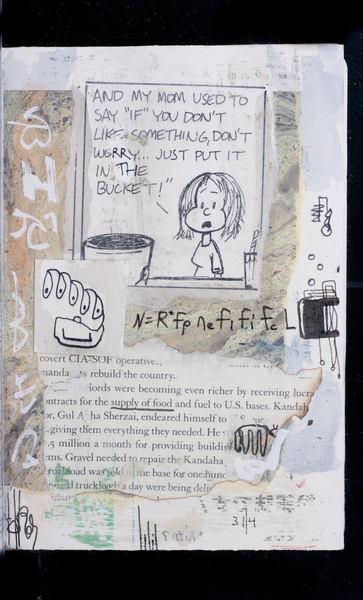 AND MY MOM USED TO
SAY "IF" YOU DON'T
LIKE SOMETHING, DON'T
WORRY... JUST PUT IT
IN THE
BUCKET!"
N=R*fp ne fl fi fc L
covert CIA-SOF operative
rebuild the country.
lords were becoming even richer by receiving lucra
ontracts for the supply of food and fuel to U.S. bases. Kandah
or, Gul A ha Sherzai, endeared himself to
giving them everything they needed. He
.5 million a month for providing buildin
ms. Gravel needed to repair the Kandaha
ruckload was sold the base for one hund
truckload a day were being deli
3 1/4